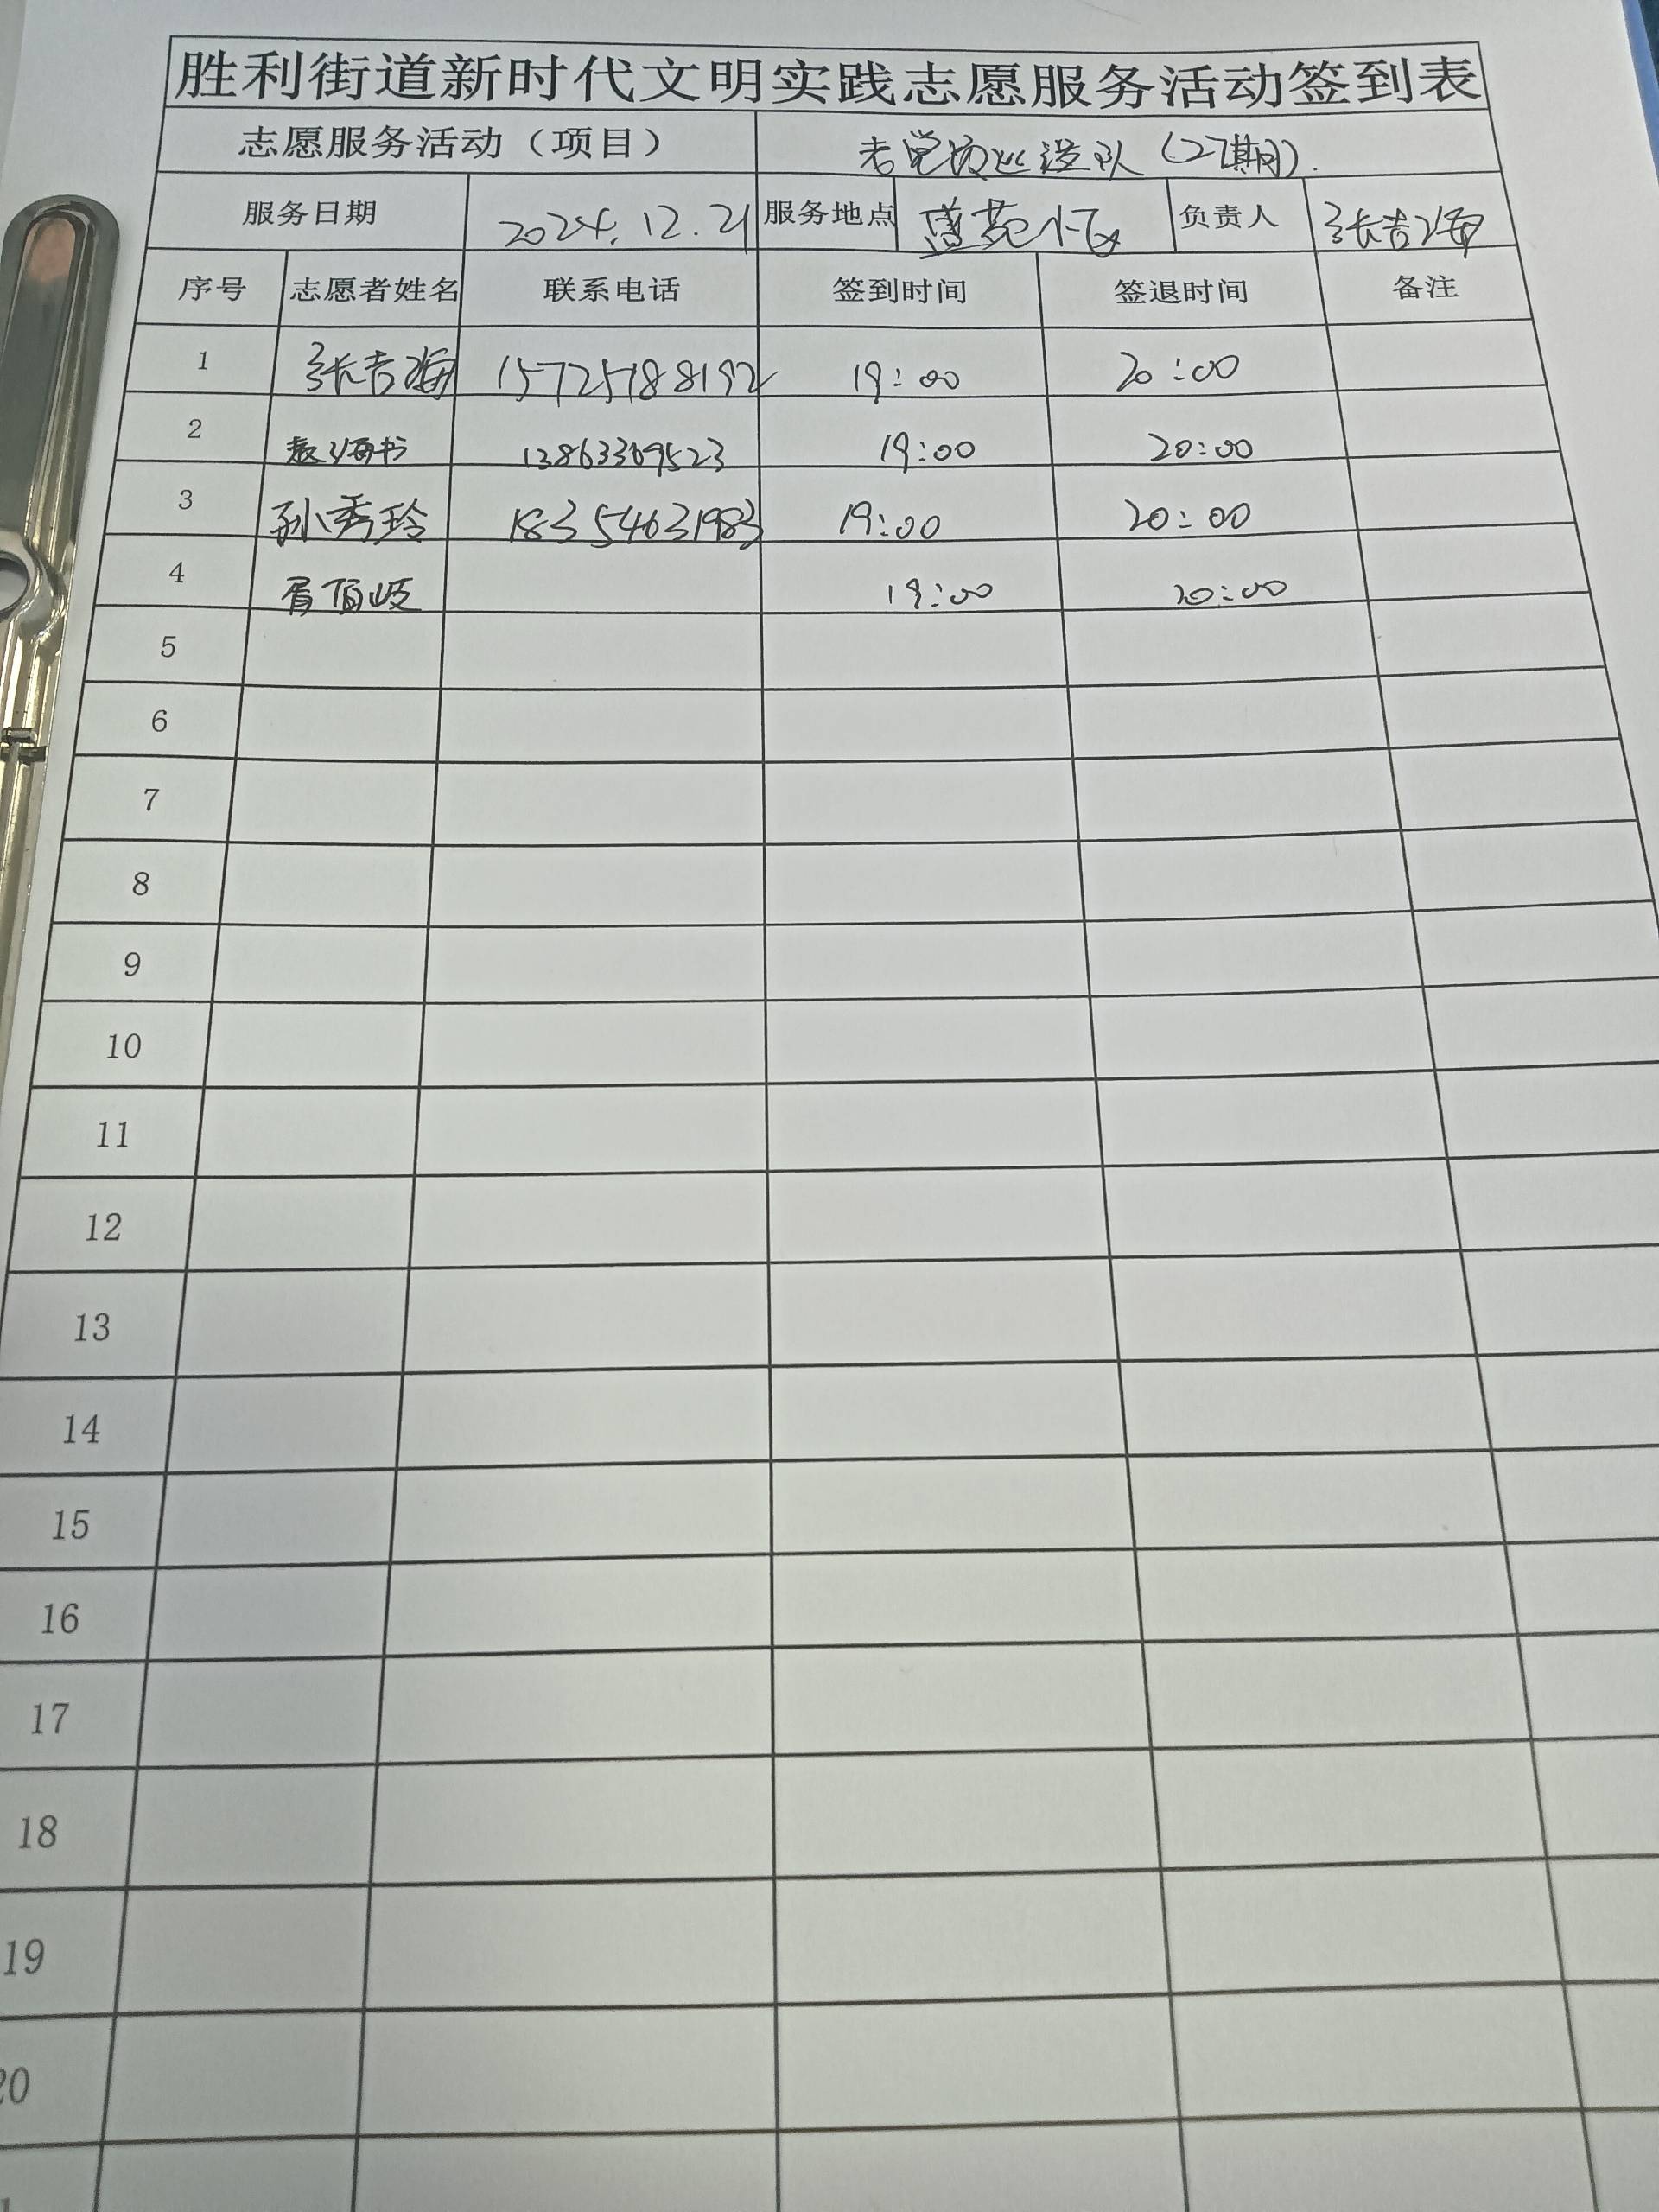 胜利街道新时代文明实践志愿服务活动签到表
志愿服务活动（项目） 老党员巡逻队（27期）.
服务日期 2024.12.21 服务地点 盛苑小区 负责人 张吉海
序号 志愿者姓名 联系电话 签到时间 签退时间 备注
1 张吉海 15725188192 19:00 20:00
2 海书 13863369523 19:00 20:00
3 孙秀玲 18354631983 19:00 20:00
4 19:00 20:00
5
6
7
8
9
10
11
12
13
14
15
16
17
18
19
20